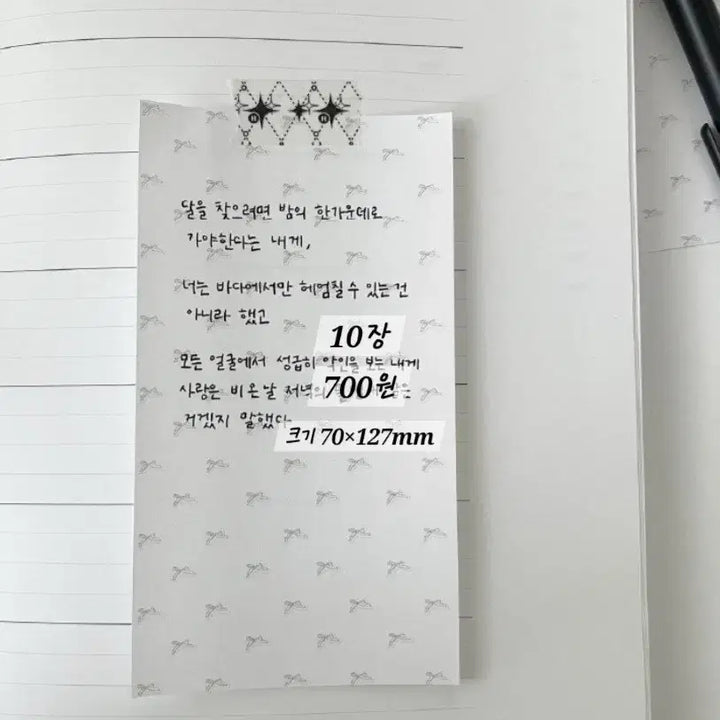 달을 찾으려면 밤의 한가운데로
가야한다는 내게,
너는 바다에서만 헤엄칠 수 있는건
아니라 했고
모든 얼굴에서 성급히 악인을 보는 내게
사랑은 비온날 저녁의
거겠지 말했다
10장
700원
크기 70×127mm